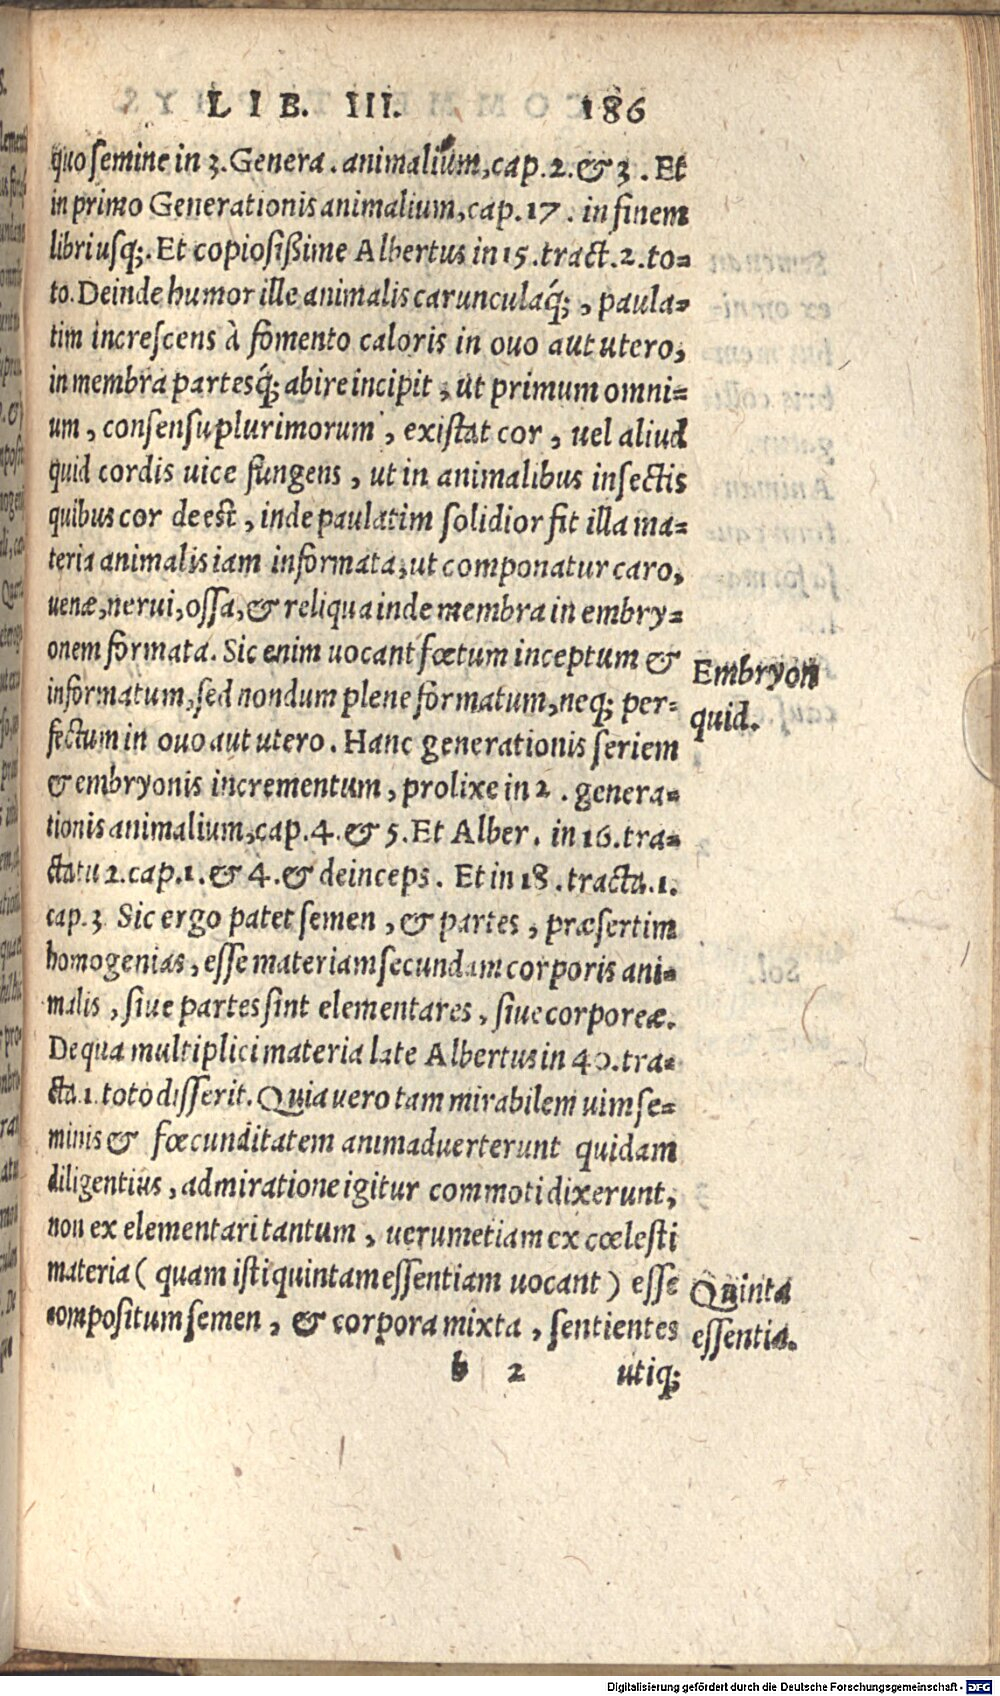 LIB. III. 186
quo semine in 3. Genera. animalium, cap. 2. & 3. Et
in primo Generationis animalium, cap. 17. in finem
libri usq;. Et copiosißime Albertus in 15. tract. 2. to=
to. Deinde humor ille animalis carunculaq́;, paula=
tim increscens à fomento caloris in ouo aut utero,
in membra partesq́; abire incipit, ut primum omni=
um, consensu plurimorum, existat cor, uel aliud
quid cordis uice fungens, ut in animalibus insectis
quibus cor deest, inde paulatim solidior fit illa ma=
teria animalis iam informata, ut componatur caro,
uenæ, nerui, ossa, & reliqua inde membra in embry=
onem formata. Sic enim uocant fœtum inceptum &
Embryon
informatum, sed nondum plene formatum, neq; per=
quid.
fectum in ouo aut utero. Hanc generationis seriem
& embryonis incrementum, prolixe in 2. genera=
tionis animalium, cap. 4. & 5. Et Alber. in 16. tra=
ctatu 2. cap. 1. & 4. & deinceps. Et in 18. tracta. 1.
cap. 3 Sic ergo patet semen, & partes, præsertim
homogenias, esse materiam secundam corporis ani=
malis, siue partes sint elementares, siue corporeæ.
De qua multiplici materia late Albertus in 40. tra=
cta. 1. toto disserit. Quia uero tam mirabilem uim se=
minis & fœcunditatem animaduerterunt quidam
diligentius, admiratione igitur commoti dixerunt,
non ex elementari tantum, uerumetiam ex cœlesti
materia (quam isti quintam essentiam uocant) esse
Quinta
compositum semen, & corpora mixta, sentientes
essentia.
b 2 utiq;
Digitalisierung gefördert durch die Deutsche Forschungsgemeinschaft - DFG